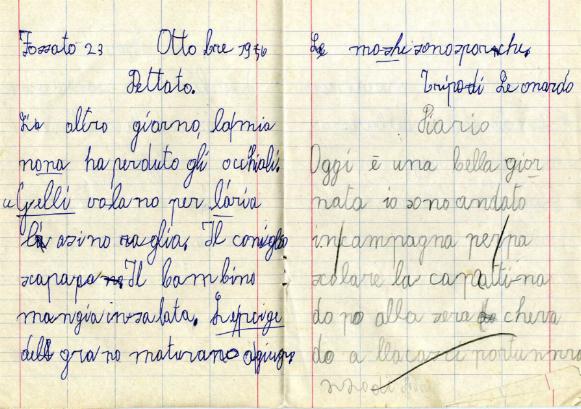 Fossato 23 Ottobre 1946
Dettato.
La altro giorno, lamia
nona ha perduto gli occhiali.
Gielli volano per lária
la asino raglia, Il coniglio
scapapa Il bambino
mangia insalata. Lespeige
dell grano maturano agiugno
Le moshi sonosporche,
Tripodi Leonardo
Diario
Oggi è una bella gior
nata io sono andato
incampagna perpa
scolare la capatti na
do po alla sera cheva
do a llacasci portunnra